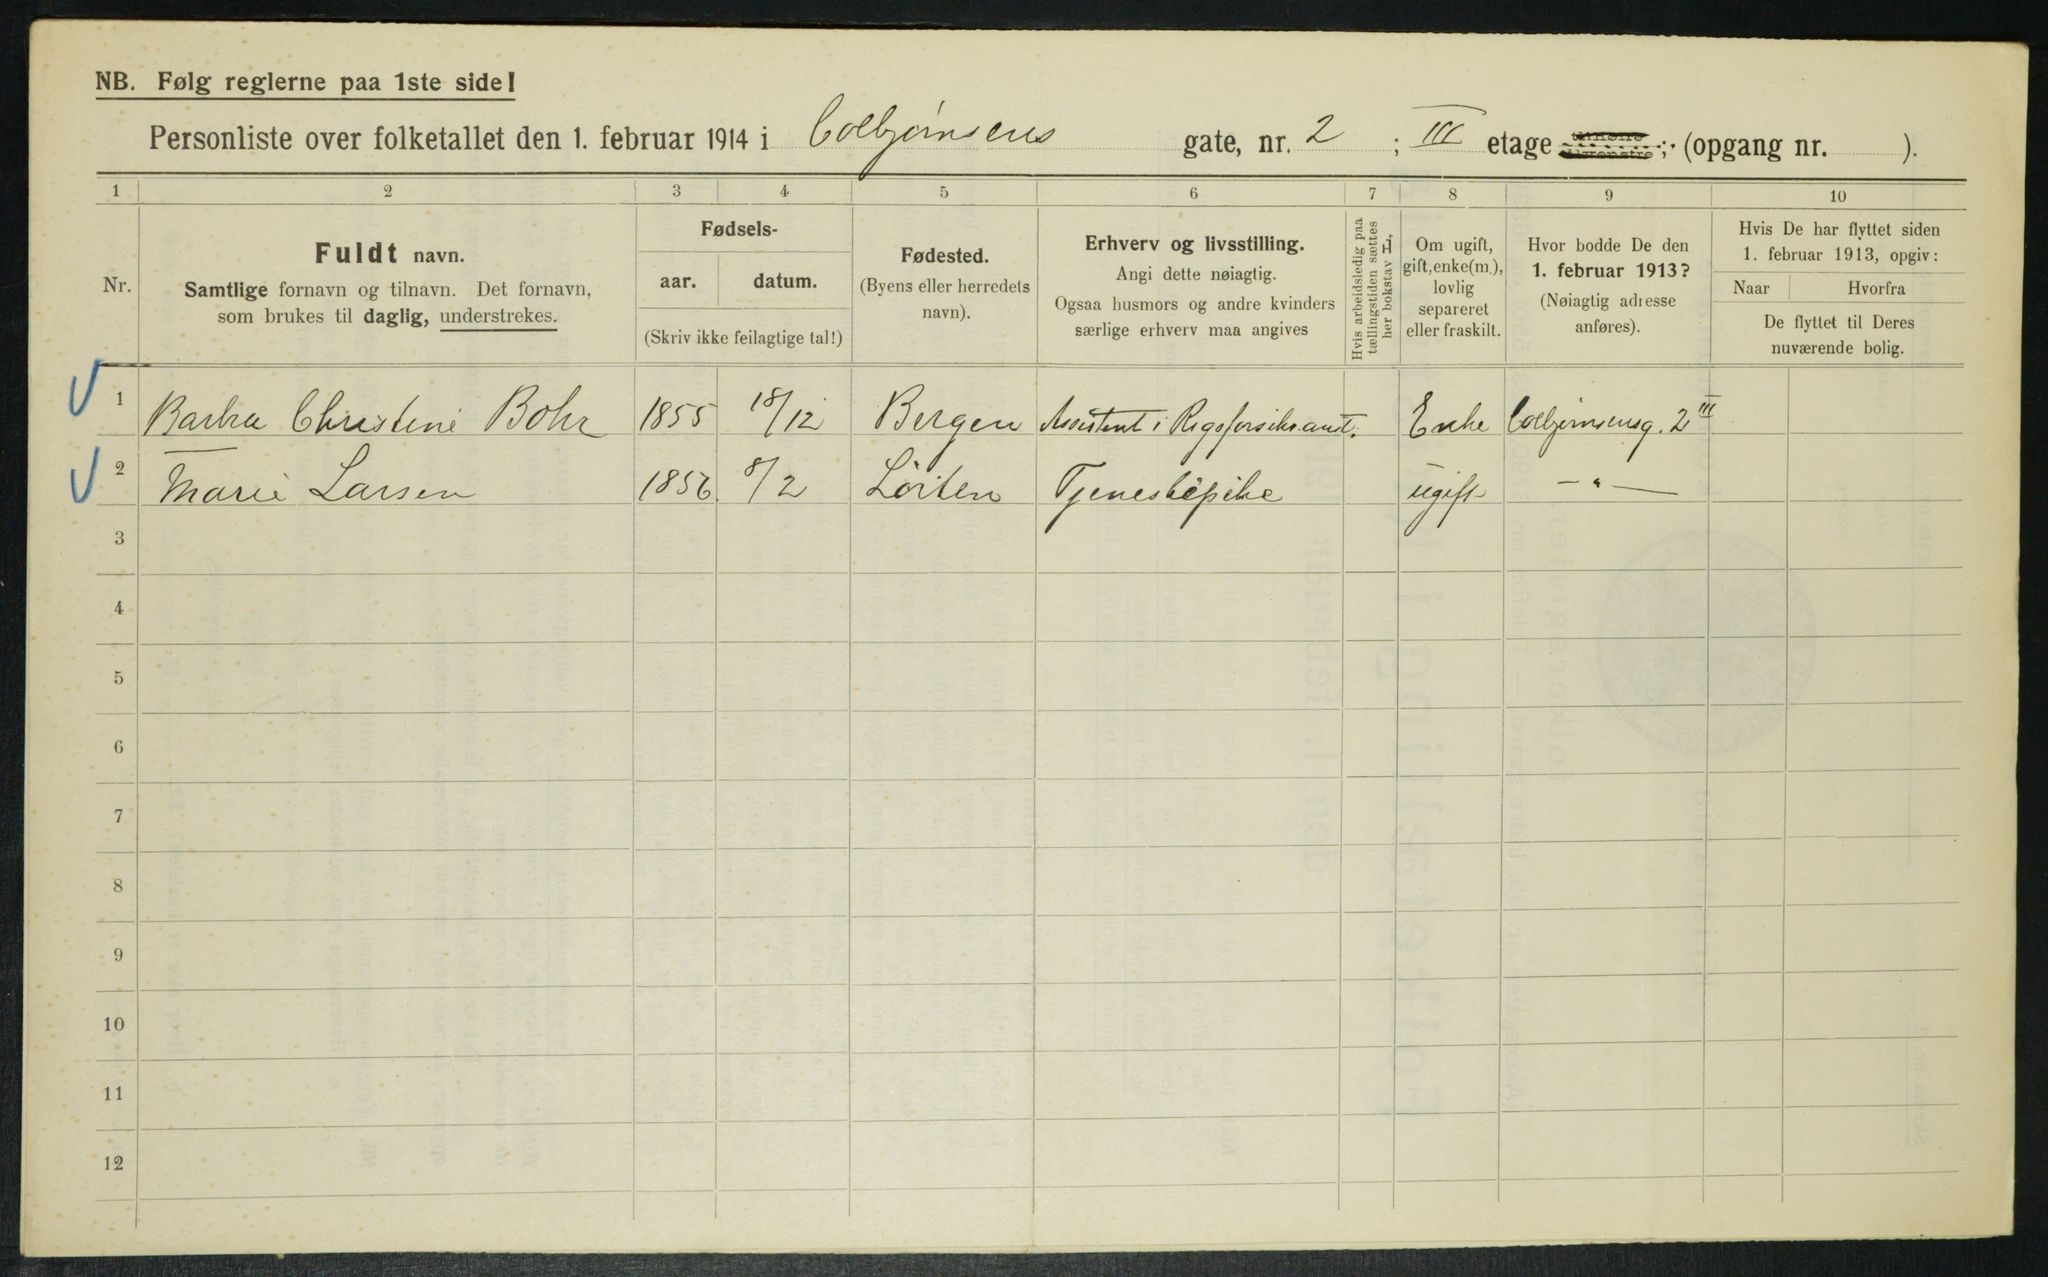 NB. Følg reglerne paa 1ste side!
Personliste over folketallet den 1. februar 1914 i Colbjørnsens gate, nr. 2 ; III etage ; (opgang nr. ).
1 2 3 4 5 6 7 8 9 10
Nr.
Fuldt navn.
Samtlige fornavn og tilnavn. Det fornavn,
som brukes til daglig, understrekes.
Fødsels-
aar. datum.
(Skriv ikke feilagtige tal!)
Fødested.
(Byens eller herredets
navn).
Erhverv og livsstilling.
Angi dette nøiagtig.
Ogsaa husmors og andre kvinders
særlige erhverv maa angives
Hvis arbeidsledig paa
tællingstiden sættes
her bokstav L,
Om ugift,
gift, enke(m.),
lovlig
separeret
eller fraskilt.
Hvor bodde De den
1. februar 1913?
(Nøiagtig adresse
anføres).
Hvis De har flyttet siden
1. februar 1913, opgiv:
Naar Hvorfra
De flyttet til Deres
nuværende bolig.
1 Barbra Christine Bohr 1855 18/12 Bergen Assistent i Rigsforsikr.amt. Enke Colbjørnsensg. 2 III
2 Marie Larsen 1856 8/2 Löiten Tjenestepike ugift — " —
3
4
5
6
7
8
9
10
11
12